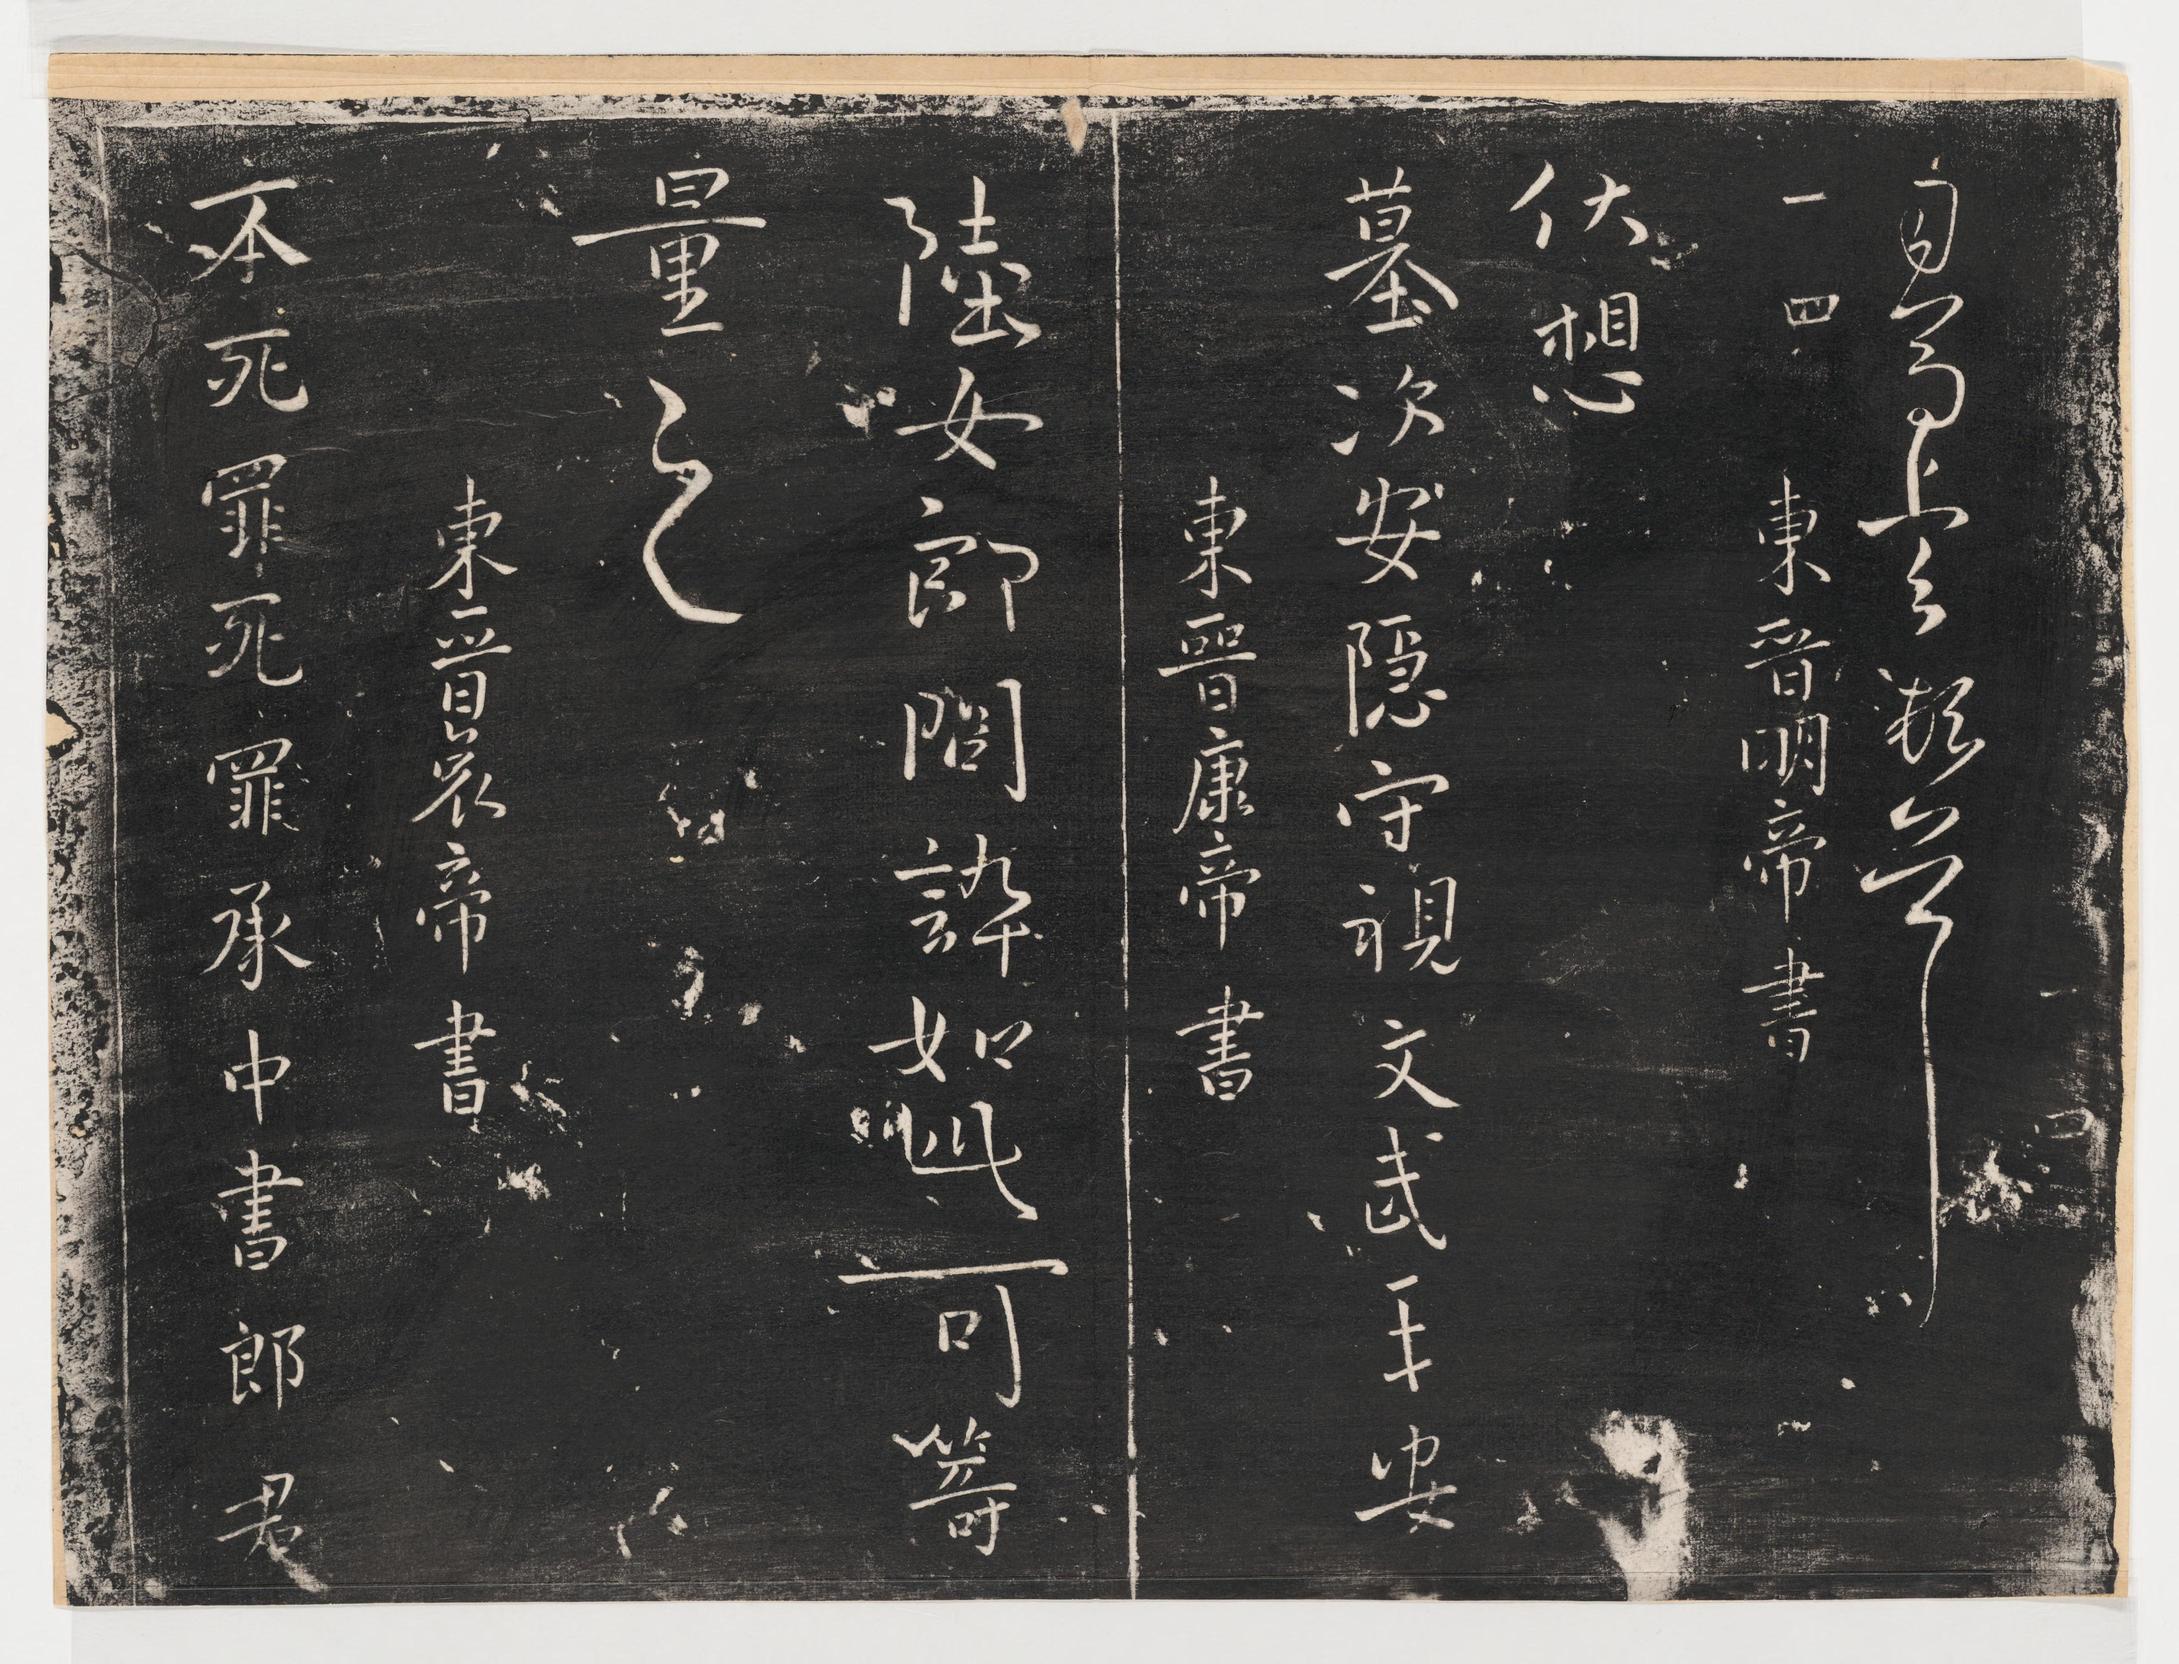 一 四
東晉明帝書
伏想
墓次安隱守視文武平安
東晉康帝書
陸女郎問誶如此可籌
量之
東晉哀帝書
丕死罪死罪承中書郎君